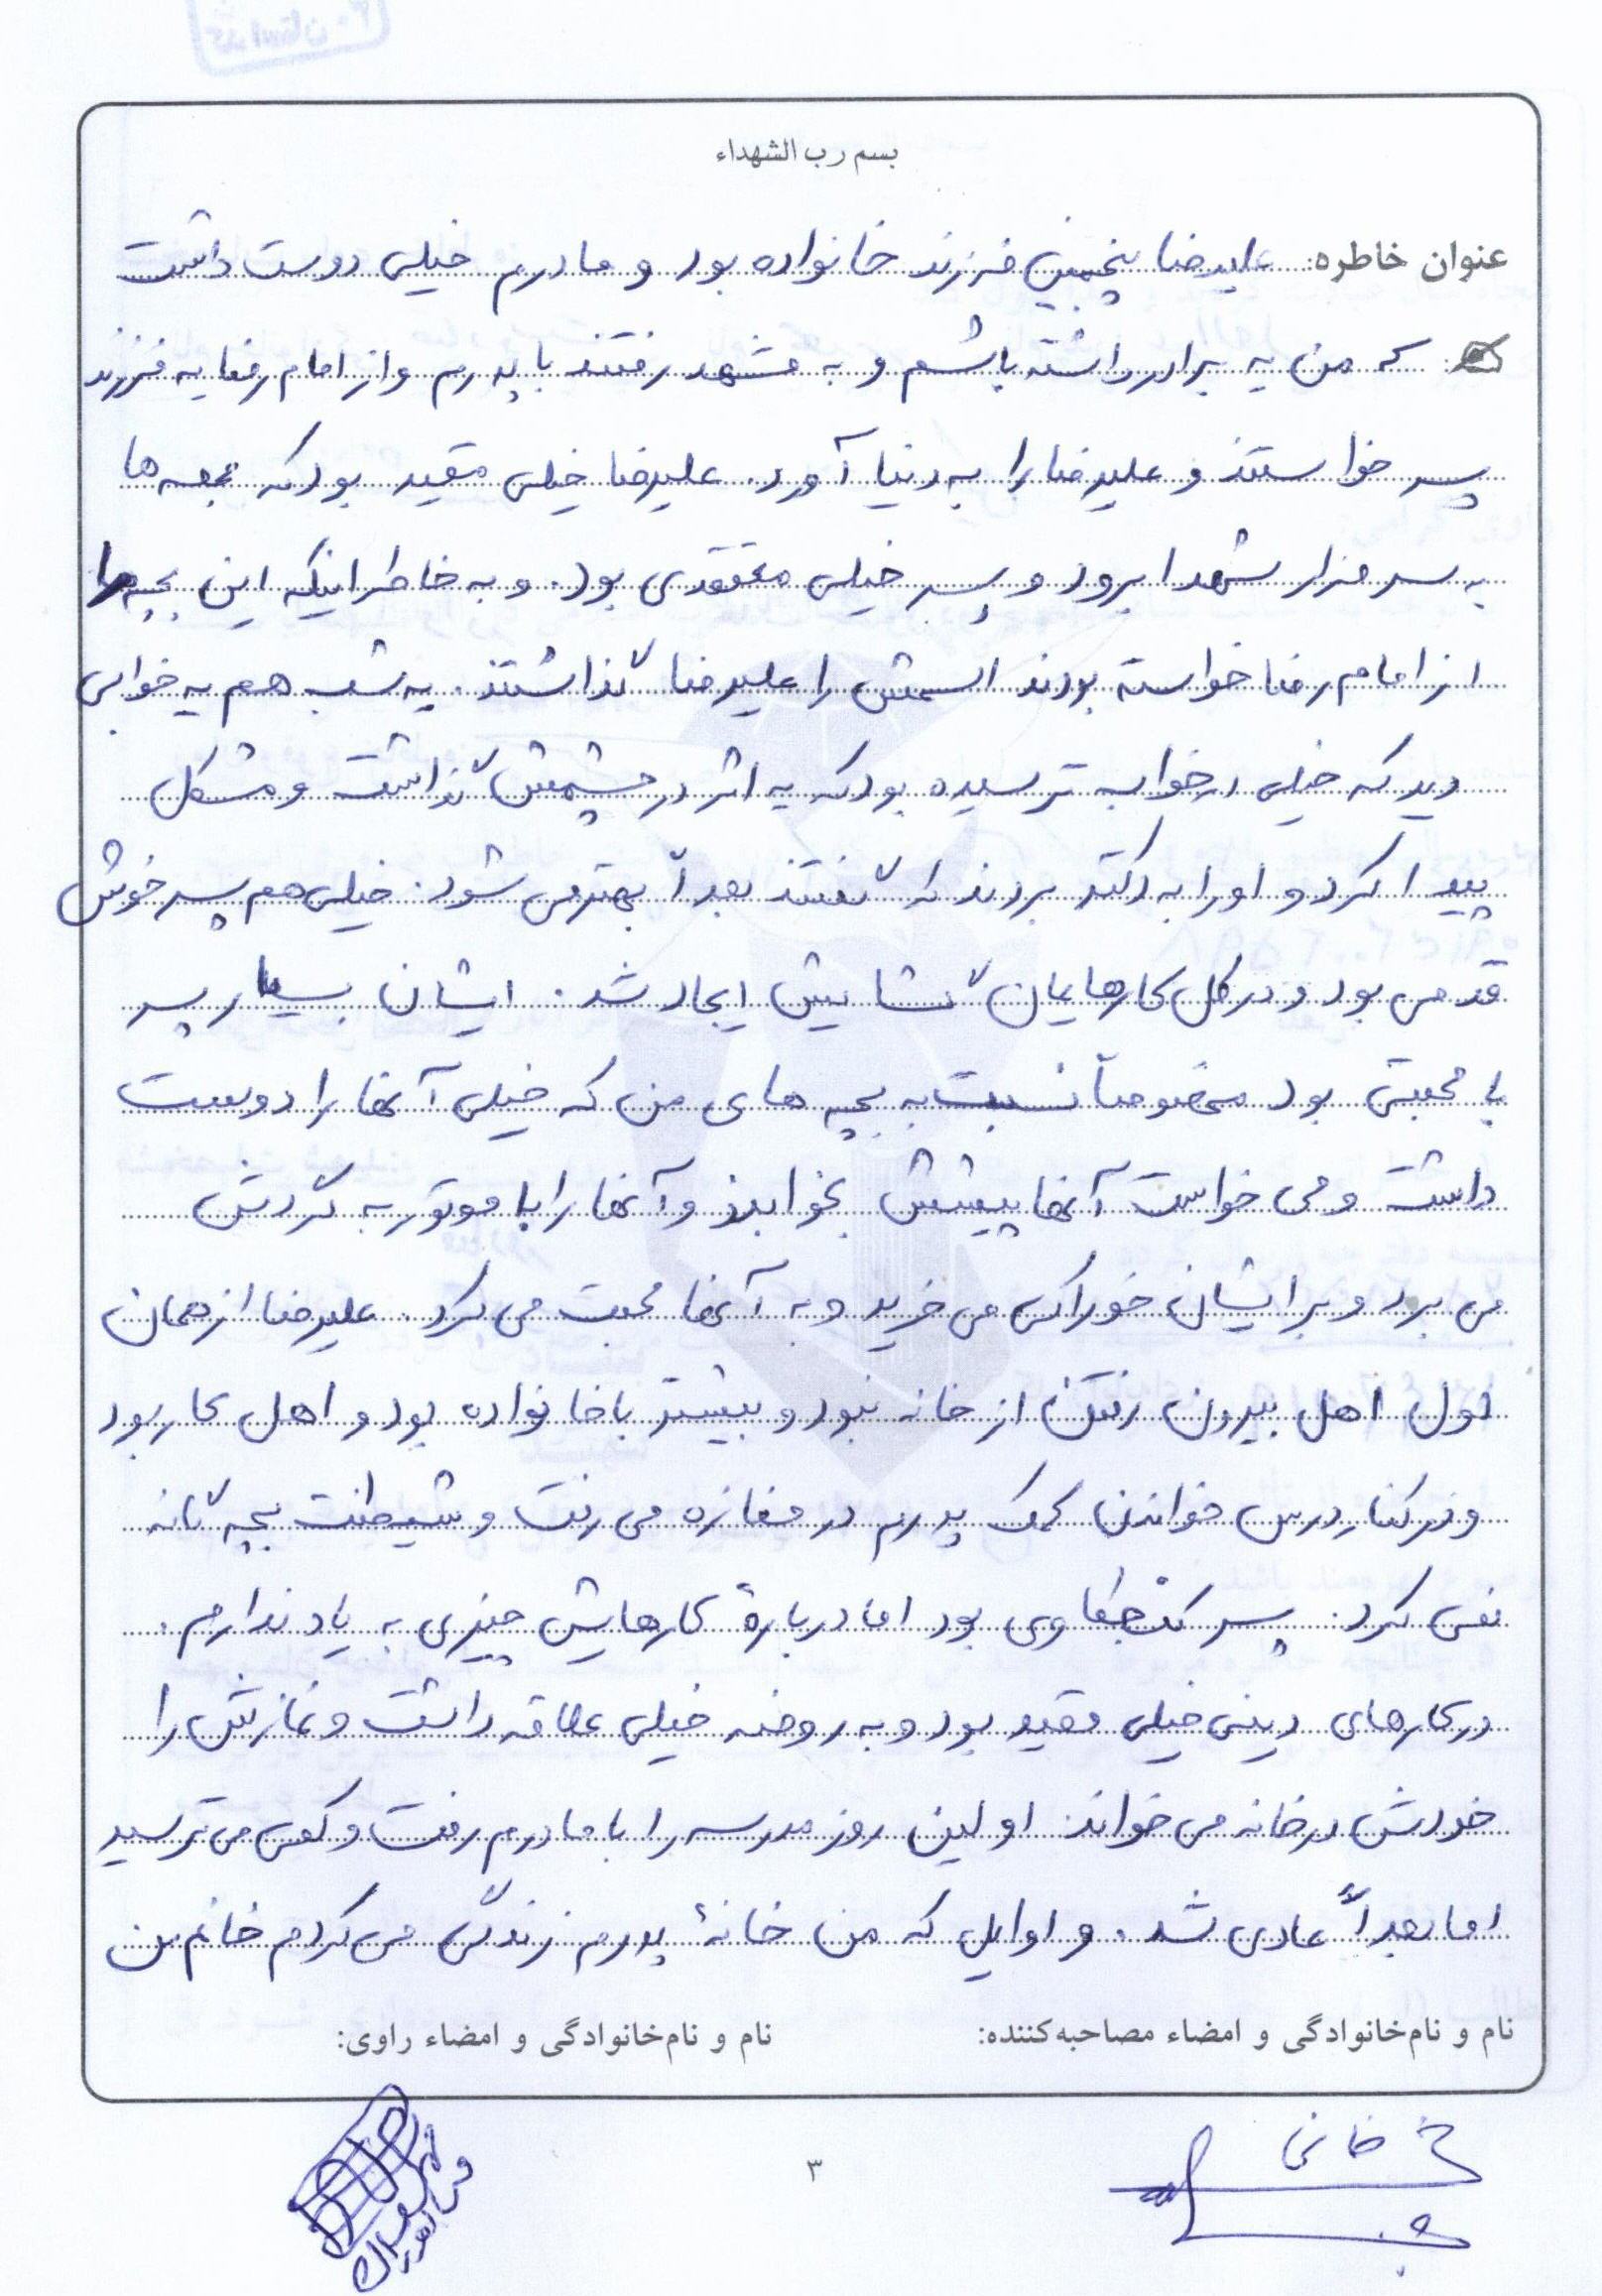 بسم رب الشهداء
عنوان خاطره: علیرضا پنجمین فرزند خانواده بود و مادرم خیلی دوست داشت
که من یه برادر داشته باشم و به مشهد رفتند با پدرم و از امام رضا یه فرزند
پسر خواستند و علیرضا را به دنیا آورد. علیرضا خیلی مقید بود که جمعه ها
به سر مزار شهدا برود و پسر خیلی معتقدی بود. و به خاطر اینکه این بچه را
از امام رضا خواسته بودند اسمش را علیرضا گذاشتند. یه شب هم یه خوابی
دید که خیلی در خواب ترسیده بود که یه اثر در چشمش گذاشت و مشکل
پیدا کرد و او را به دکتر بردند که گفتند بعداً بهتر می شود. خیلی هم پسر خوش
قدمی بود و در کل کارهایمان گشایش ایجاد شد. ایشان بسیار پسر
با محبتی بود مخصوصاً نسبت به بچه های من که خیلی آنها را دوست
داشت و می خواست آنها پیشش بخوابند و آنها را با موتور به گردش
می برد و برایشان خوراکی می خرید و به آنها محبت می کرد. علیرضا از همان
اول اهل بیرون رفتن از خانه نبود و بیشتر با خانواده بود و اهل کار بود
و در کنار درس خواندن کمک پدرم در مغازه می رفت و شیطنت بچه گانه
نمی کرد. پسر کنجکاوی بود اما دربارهٔ کارهایش چیزی به یاد ندارم.
در کارهای دینی خیلی مقید بود و به روضه خیلی علاقه داشت و نمازش را
خودش در خانه می خواند. اولین روز مدرسه را با مادرم رفت و کمی می ترسید
اما بعداً عادی شد. و اوایل که من خانهٔ پدرم زندگی می کردم خانم من
نام و نام‌خانوادگی و امضاء مصاحبه‌کننده:
نام و نام‌خانوادگی و امضاء راوی:
خانی
۳